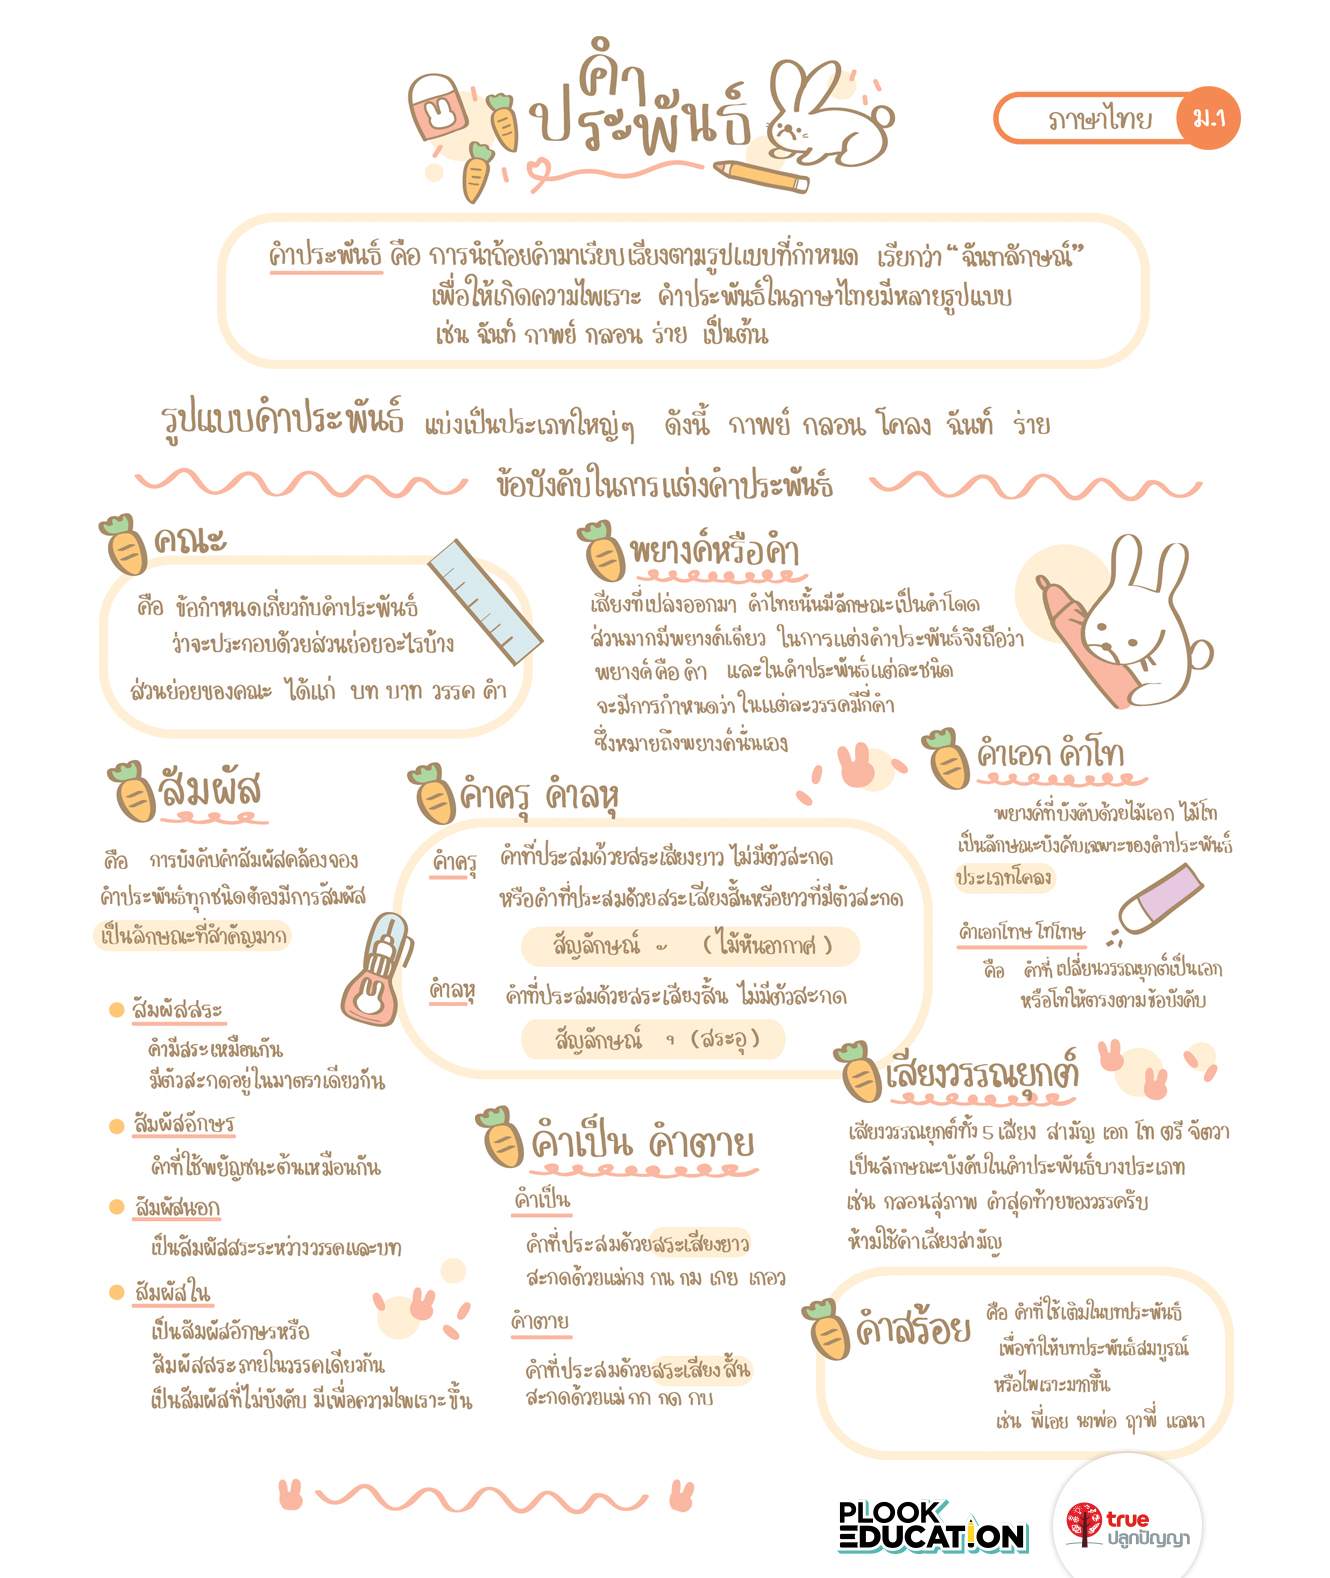 คำ
ประพันธ์
ภาษาไทย ม.1
คำประพันธ์ คือ การนำถ้อยคำมาเรียบเรียงตามรูปแบบที่กำหนด เรียกว่า “ฉันทลักษณ์”
เพื่อให้เกิดความไพเราะ คำประพันธ์ในภาษาไทยมีหลายรูปแบบ
เช่น ฉันท์ กาพย์ กลอน ร่าย เป็นต้น
รูปแบบคำประพันธ์ แบ่งเป็นประเภทใหญ่ๆ ดังนี้ กาพย์ กลอน โคลง ฉันท์ ร่าย
ข้อบังคับในการแต่งคำประพันธ์
คณะ
คือ ข้อกำหนดเกี่ยวกับคำประพันธ์
ว่าจะประกอบด้วยส่วนย่อยอะไรบ้าง
ส่วนย่อยของคณะ ได้แก่ บท บาท วรรค คำ
พยางค์หรือคำ
เสียงที่เปล่งออกมา คำไทยนั้นมีลักษณะเป็นคำโดด
ส่วนมากมีพยางค์เดียว ในการแต่งคำประพันธ์จึงถือว่า
พยางค์ คือ คำ และในคำประพันธ์แต่ละชนิด
จะมีการกำหนดว่า ในแต่ละวรรคมีกี่คำ
ซึ่งหมายถึงพยางค์นั่นเอง
สัมผัส
คือ การบังคับคำสัมผัสคล้องจอง
คำประพันธ์ทุกชนิดต้องมีการสัมผัส
เป็นลักษณะที่สำคัญมาก
สัมผัสสระ
คำมีสระเหมือนกัน
มีตัวสะกดอยู่ในมาตราเดียวกัน
สัมผัสอักษร
คำที่ใช้พยัญชนะต้นเหมือนกัน
สัมผัสนอก
เป็นสัมผัสสระระหว่างวรรคและบท
สัมผัสใน
เป็นสัมผัสอักษรหรือ
สัมผัสสระภายในวรรคเดียวกัน
เป็นสัมผัสที่ไม่บังคับ มีเพื่อความไพเราะขึ้น
คำครุ คำลหุ
คำครุ คำที่ประสมด้วยสระเสียงยาว ไม่มีตัวสะกด
หรือคำที่ประสมด้วยสระเสียงสั้นหรือยาวที่มีตัวสะกด
สัญลักษณ์ ั (ไม้หันอากาศ)
คำลหุ คำที่ประสมด้วยสระเสียงสั้น ไม่มีตัวสะกด
สัญลักษณ์ ุ (สระอุ)
คำเป็น คำตาย
คำเป็น
คำที่ประสมด้วยสระเสียงยาว
สะกดด้วยแม่กง กน กม เกย เกอว
คำตาย
คำที่ประสมด้วยสระเสียงสั้น
สะกดด้วยแม่ กก กด กบ
คำเอก คำโท
พยางค์ที่บังคับด้วยไม้เอก ไม้โท
เป็นลักษณะบังคับเฉพาะของคำประพันธ์
ประเภทโคลง
คำเอกโทษ โทโทษ
คือ คำที่เปลี่ยนวรรณยุกต์เป็นเอก
หรือโทให้ตรงตามข้อบังคับ
เสียงวรรณยุกต์
เสียงวรรณยุกต์ทั้ง 5 เสียง สามัญ เอก โท ตรี จัตวา
เป็นลักษณะบังคับในคำประพันธ์บางประเภท
เช่น กลอนสุภาพ คำสุดท้ายของวรรครับ
ห้ามใช้คำเสียงสามัญ
คำสร้อย
คือ คำที่ใช้เติมในบทประพันธ์
เพื่อทำให้บทประพันธ์สมบูรณ์
หรือไพเราะมากขึ้น
เช่น พี่เอย นาพ่อ ฤาพี่ แลนา
PLOOK
EDUCATION
true
ปลูกปัญญา